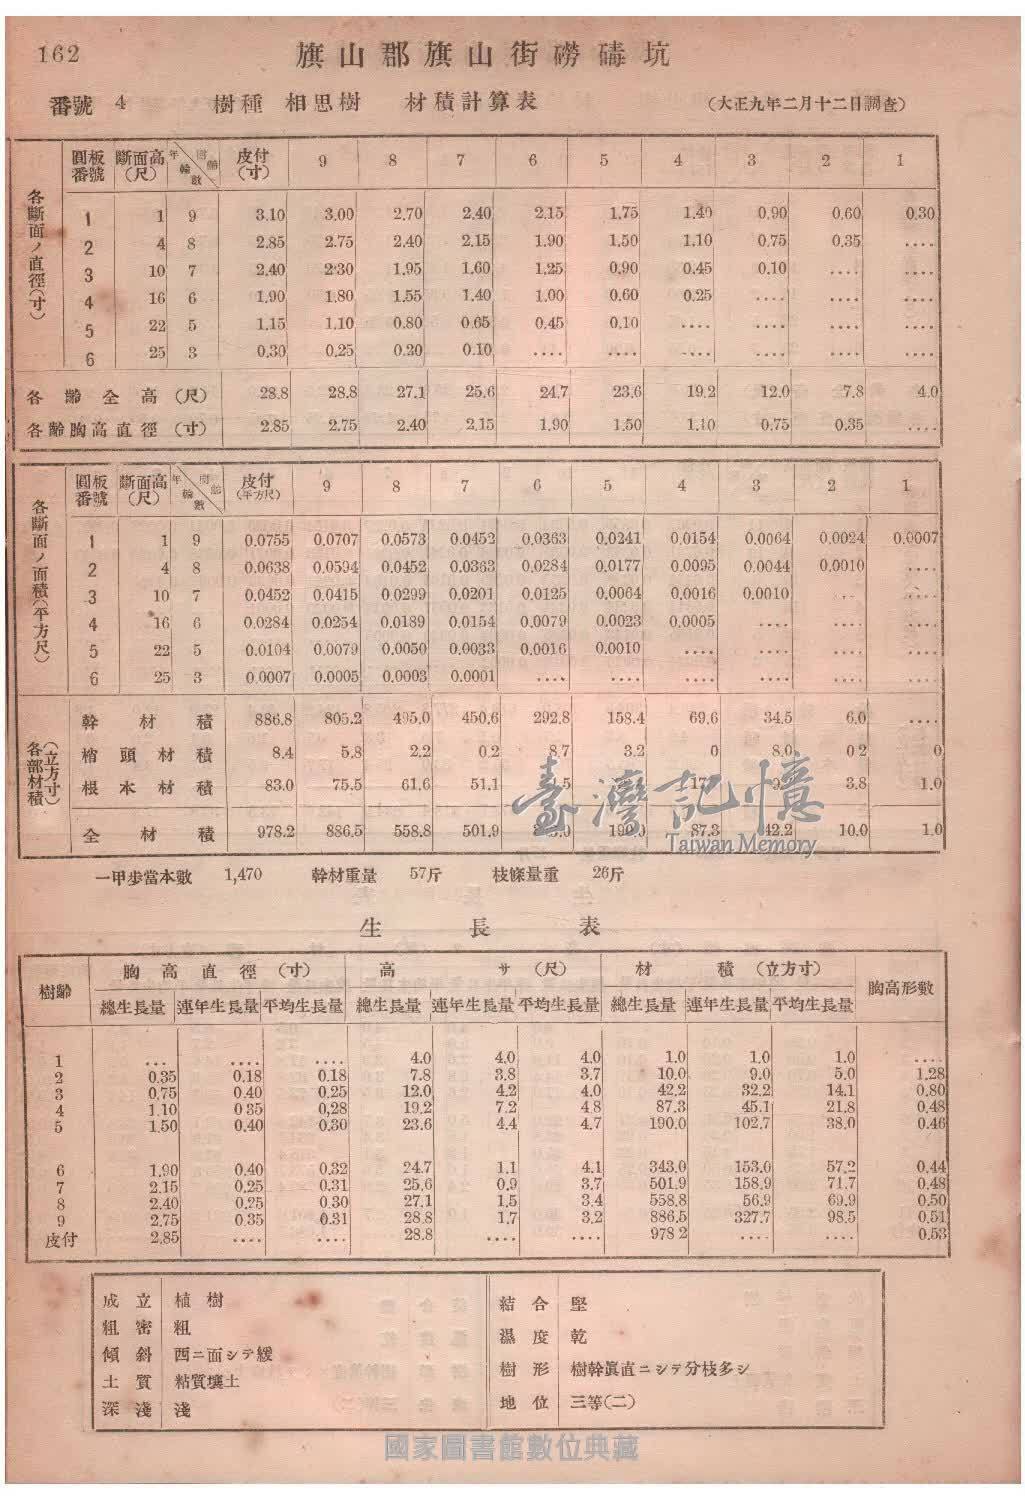 162
旗山郡旗山街磱磗坑
番號 4 樹種 相思樹 材積計算表 (大正九年二月十二日調査)
各斷面ノ直徑(寸)
圓板番號 斷面高(尺) 年輪數 樹齡 皮付(寸) 9 8 7 6 5 4 3 2 1
1 1 9 3.10 3.00 2.70 2.40 2.15 1.75 1.40 0.90 0.60 0.30
2 4 8 2.85 2.75 2.40 2.15 1.90 1.50 1.10 0.75 0.35 ....
3 10 7 2.40 2.30 1.95 1.60 1.25 0.90 0.45 0.10 .... ....
4 16 6 1.90 1.80 1.55 1.40 1.00 0.60 0.25 .... .... ....
5 22 5 1.15 1.10 0.80 0.65 0.45 0.10 .... .... .... ....
6 25 3 0.30 0.25 0.20 0.10 .... .... .... .... .... ....
各齡全高(尺) 28.8 28.8 27.1 25.6 24.7 23.6 19.2 12.0 7.8 4.0
各齡胸高直徑(寸) 2.85 2.75 2.40 2.15 1.90 1.50 1.10 0.75 0.35 ....
各斷面ノ面積(平方尺)
圓板番號 斷面高(尺) 年輪數 樹齡 皮付(平方尺) 9 8 7 6 5 4 3 2 1
1 1 9 0.0755 0.0707 0.0573 0.0452 0.0363 0.0241 0.0154 0.0064 0.0024 0.0007
2 4 8 0.0638 0.0594 0.0452 0.0363 0.0284 0.0177 0.0095 0.0044 0.0010 ....
3 10 7 0.0452 0.0415 0.0299 0.0201 0.0125 0.0064 0.0016 0.0010 .... ....
4 16 6 0.0284 0.0254 0.0189 0.0154 0.0079 0.0023 0.0005 .... .... ....
5 22 5 0.0104 0.0079 0.0050 0.0033 0.0016 0.0010 .... .... .... ....
6 25 3 0.0007 0.0005 0.0003 0.0001 .... .... .... .... .... ....
各部材積(立方寸)
幹材積 886.8 805.2 495.0 450.6 292.8 158.4 69.6 34.5 6.0 ....
梢頭材積 8.4 5.8 2.2 0.2 8.7 3.2 0 8.0 0.2 0
根本材積 83.0 75.5 61.6 51.1 3.8 1.0
全材積 978.2 886.5 558.8 501.9 190.0 87.3 42.2 10.0 1.0
臺灣記憶
Taiwan Memory
一甲步當本數 1,470 幹材重量 57斤 枝條量重 26斤
生長表
樹齡 胸高直徑(寸) 高サ(尺) 材積(立方寸) 胸高形數
總生長量 連年生長量 平均生長量 總生長量 連年生長量 平均生長量 總生長量 連年生長量 平均生長量
1 .... .... .... 4.0 4.0 4.0 1.0 1.0 1.0 ....
2 0.35 0.18 0.18 7.8 3.8 3.7 10.0 9.0 5.0 1.28
3 0.75 0.40 0.25 12.0 4.2 4.0 42.2 32.2 14.1 0.80
4 1.10 0.35 0.28 19.2 7.2 4.8 87.3 45.1 21.8 0.48
5 1.50 0.40 0.30 23.6 4.4 4.7 190.0 102.7 38.0 0.46
6 1.90 0.40 0.32 24.7 1.1 4.1 343.0 153.0 57.2 0.44
7 2.15 0.25 0.31 25.6 0.9 3.7 501.9 158.9 71.7 0.48
8 2.40 0.25 0.30 27.1 1.5 3.4 558.8 56.9 69.9 0.50
9 2.75 0.35 0.31 28.8 1.7 3.2 886.5 327.7 98.5 0.51
皮付 2.85 .... .... 28.8 .... .... 978.2 .... .... 0.53
成立 植樹
粗密 粗
傾斜 西ニ面シテ緩
土質 粘質壤土
深淺 淺
結合 堅
濕度 乾
樹形 樹幹眞直ニシテ分枝多シ
地位 三等(二)
國家圖書館數位典藏